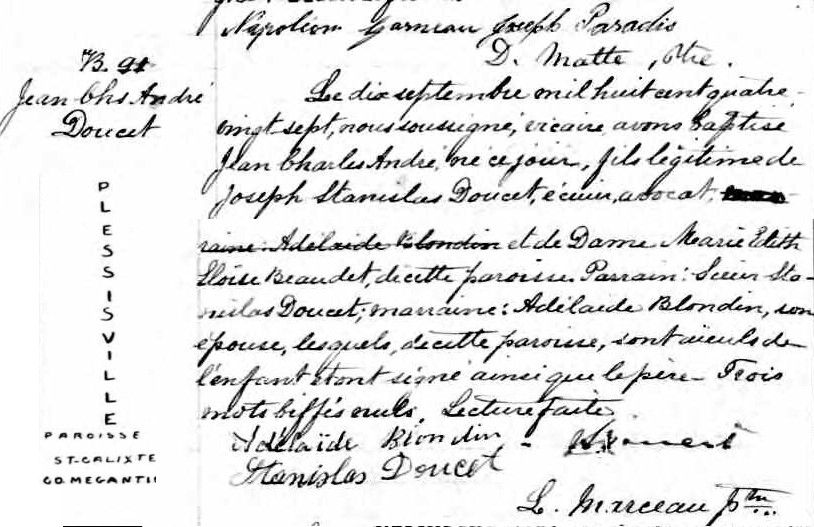 Napoléon Garneau Joseph Paradis
D. Matte, Ptre.
B. 91
Jean Chs André
Doucet
Le dix septembre mil huit cent quatre-
vingt-sept, nous soussigné, vicaire avons baptisé
Jean Charles André, né ce jour, fils légitime de
Joseph Stanislas Doucet, écuier, avocat,
raine: Adélaïde Blondin et de Dame Marie Edith
Eloïse Beaudet, de cette paroisse. Parrain: Sieur Sta-
nislas Doucet; marraine: Adélaïde Blondin, son
épouse, lesquels, de cette paroisse, sont aïeuls de
l'enfant et ont signé ainsi que le père. Trois
mots biffés nuls. Lecture faite.
Adélaïde Blondin
Stanislas Doucet
L. Marceau Ptre
PLESSISVILLE
PAROISSE
ST-CALIXTE
CO. MEGANTIC